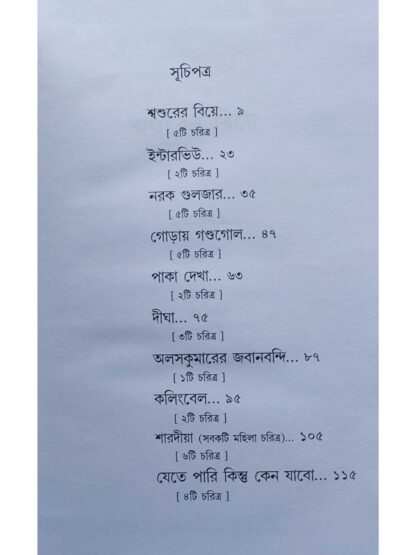 সূচিপত্র
শ্বশুরের বিয়ে... ৯
[ ৫টি চরিত্র ]
ইন্টারভিউ... ২৩
[ ২টি চরিত্র ]
নরক গুলজার... ৩৫
[ ৫টি চরিত্র ]
গোড়ায় গণ্ডগোল... ৪৭
[ ৫টি চরিত্র ]
পাকা দেখা... ৬৩
[ ২টি চরিত্র ]
দীঘা... ৭৫
[ ৩টি চরিত্র ]
অলসকুমারের জবানবন্দি... ৮৭
[ ১টি চরিত্র ]
কলিংবেল... ৯৫
[ ২টি চরিত্র ]
শারদীয়া (সবকটি মহিলা চরিত্র)... ১০৫
[ ৬টি চরিত্র ]
যেতে পারি কিন্তু কেন যাবো... ১১৫
[ ৪টি চরিত্র ]